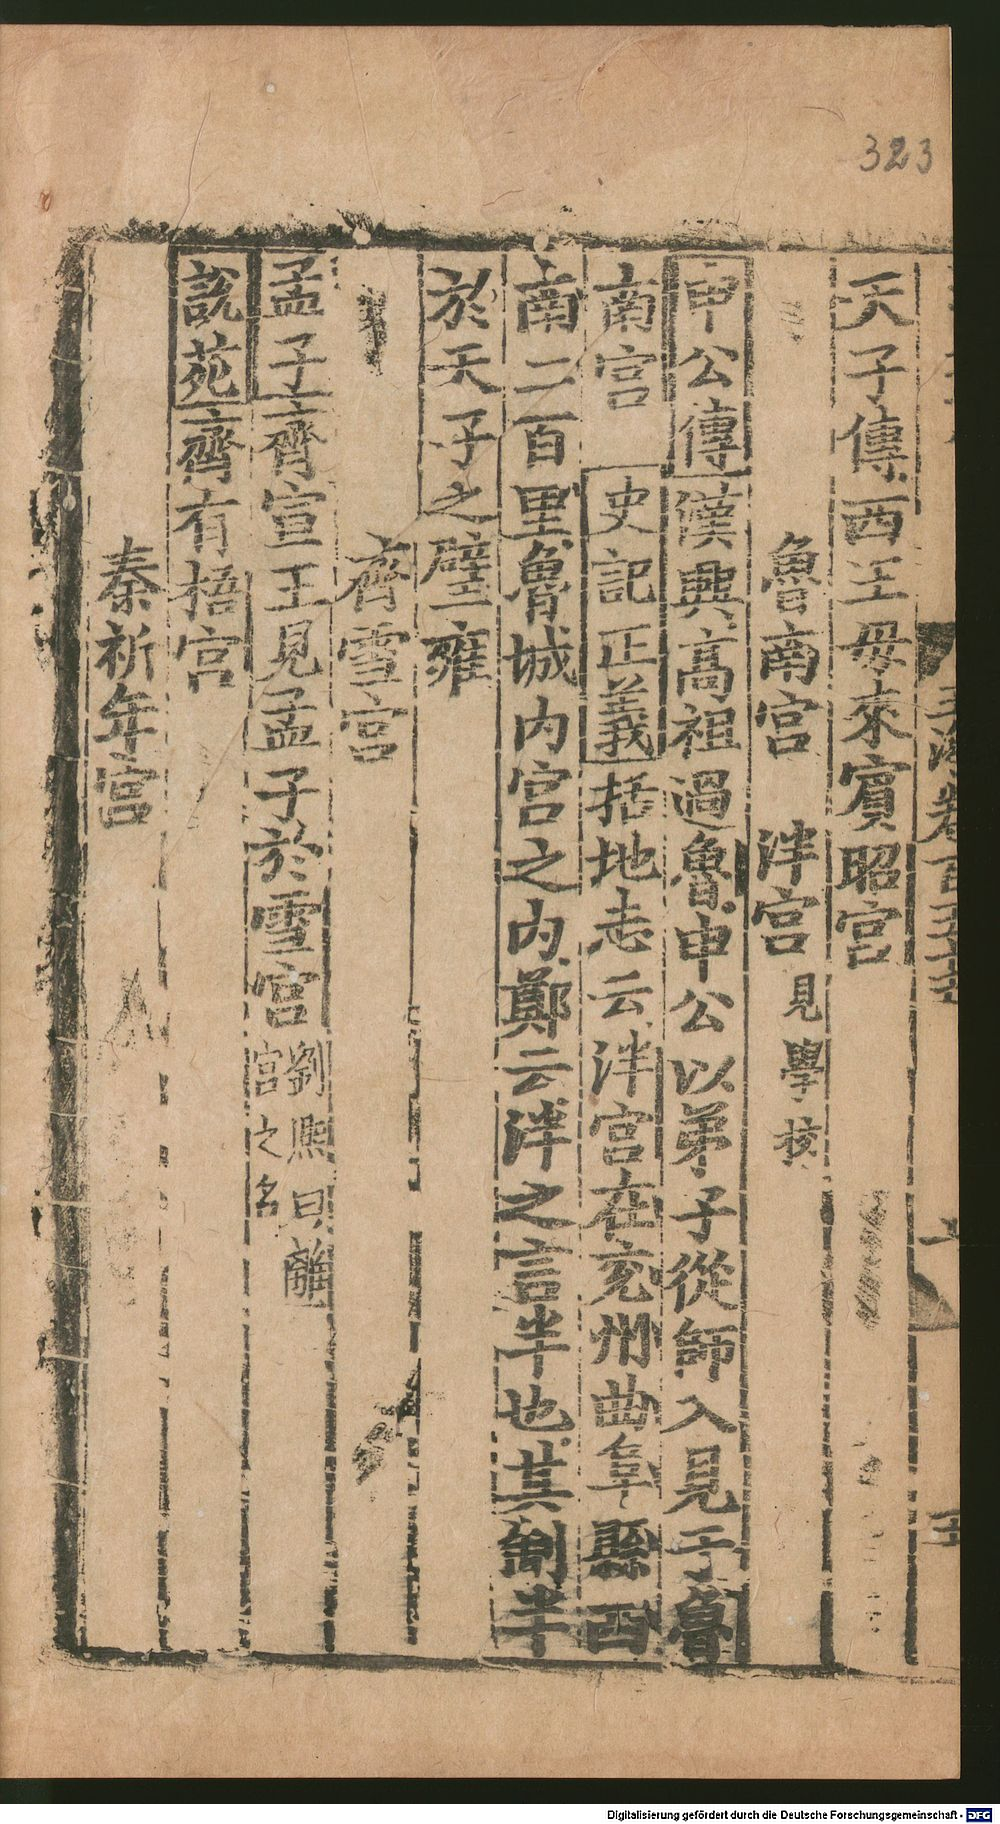 323
天子傳西王母來賓昭宮
魯南宮 泮宮 見學校
申公傳漢興高祖過魯申公以弟子從師入見于魯
南宮 史記正義括地志云泮宮在兖州曲阜縣西
南二百里魯城内宮之内鄭云泮之言半也其制半
於天子之壁雍
齊雪宮
孟子齊宣王見孟子於雪宮 劉熈曰離
宮之名
說苑齊有梧宮
秦祈年宮
Digitalisierung gefördert durch die Deutsche Forschungsgemeinschaft - DFG